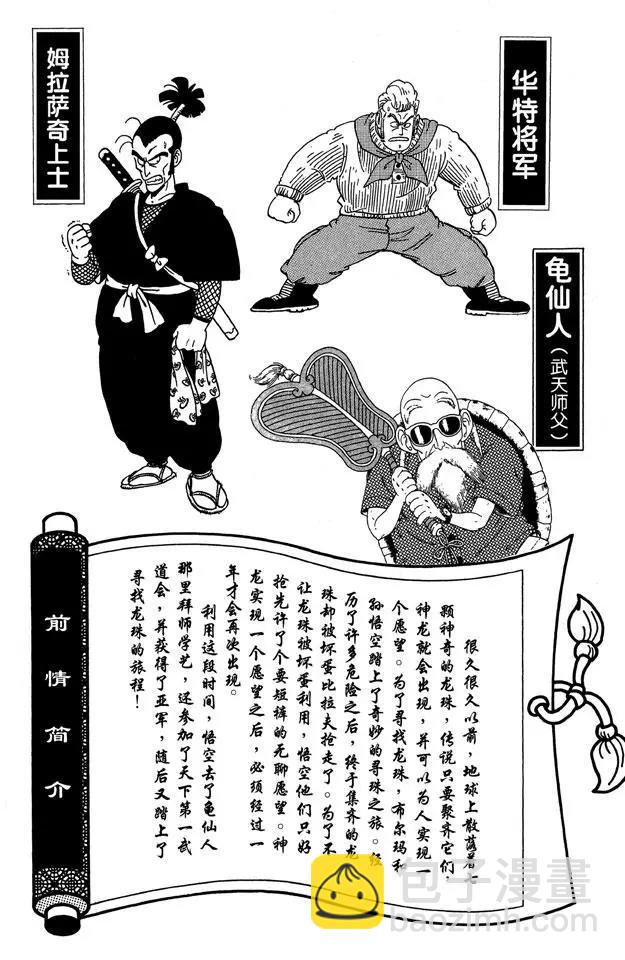 姆拉萨奇上士
华特将军
龟仙人(武天师父)
前情简介
很久很久以前,地球上散落着
颗神奇的龙珠,传说只要聚齐它们,
神龙就会出现,并可以为人实现一
个愿望。为了寻找龙珠,布尔玛和
孙悟空踏上了奇妙的寻珠之旅。经
历了许多危险之后,终于集齐的龙
珠却被坏蛋比拉夫抢走了。为了不
让龙珠被坏蛋利用,悟空他们只好
抢先许了个要短裤的无聊愿望。神
龙实现一个愿望之后,必须经过一
年才会再次出现。
利用这段时间,悟空去了龟仙人
那里拜师学艺,还参加了天下第一武
道会,并获得了亚军,随后又踏上了
寻找龙珠的旅程!
包子漫畫
baozimh.com